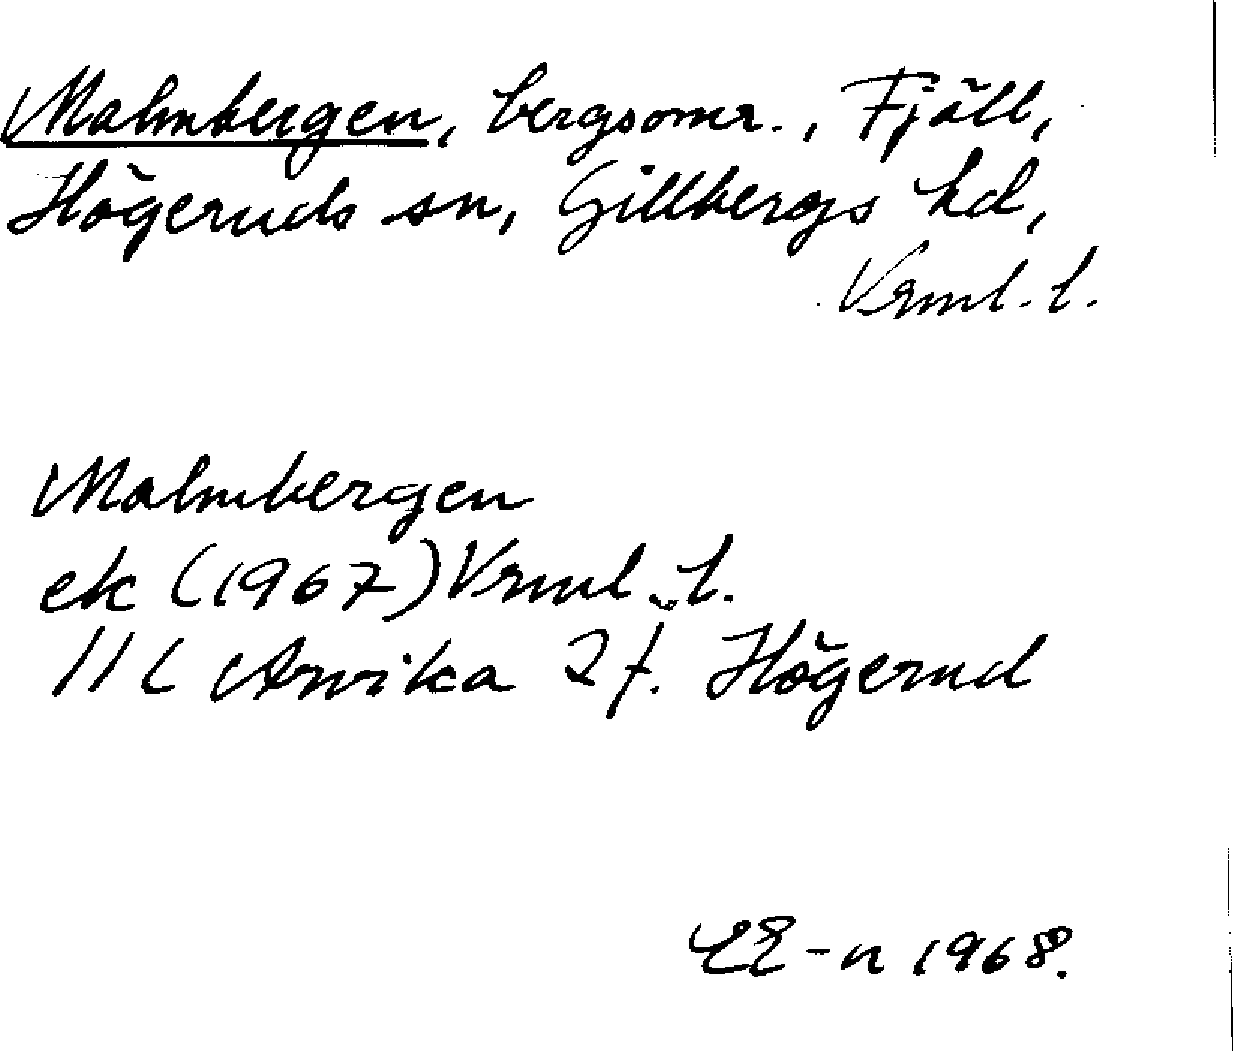 Malmbergen, bergsomr., Fjäll,
Högeruds sn, Gillbergs hd,
Vrml. l.
Malmbergen
ek (1967) Vrml. l.
11 C Arvika 2 f. Högerud
EE-n 1968.